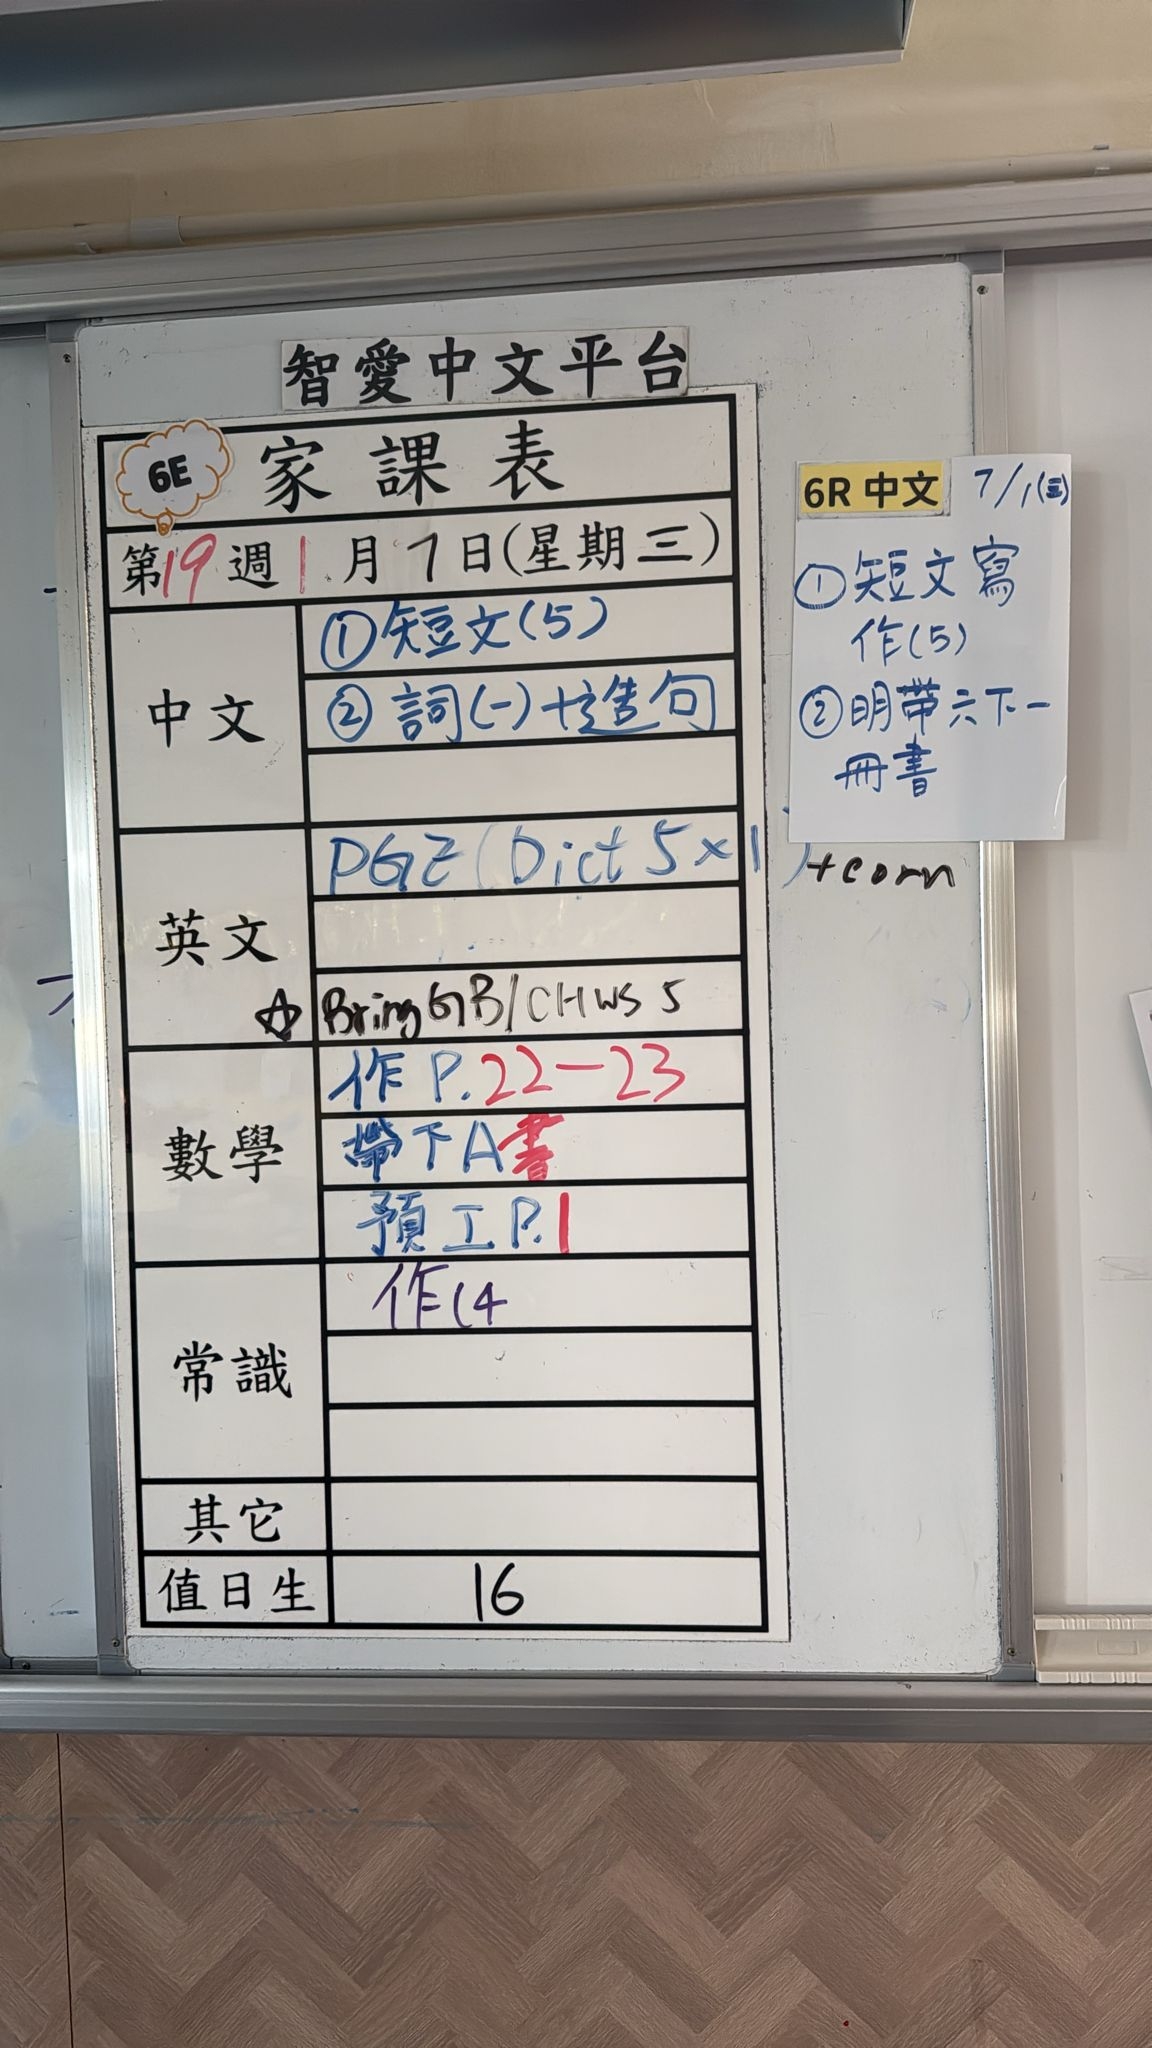 智愛中文平台
6E 家課表
第19週1月7日(星期三)
中文
①短文(5)
②詞(一)+造句
英文
PGE(Dict 5x1)+corn
☆ Bring GB/CHWS 5
數學
作 P.22-23
帶下A書
預工P.1
常識
作(4
其它
值日生
16
6R 中文 7/1(三)
①短文寫
作(5)
②明帶六下一
冊書